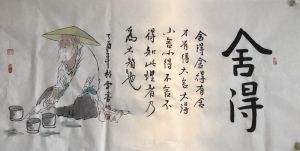 舍得
舍得舍得有舍
才有得大舍大得
小舍小得不舍不
得知此理者乃
為大智也
丁酉年